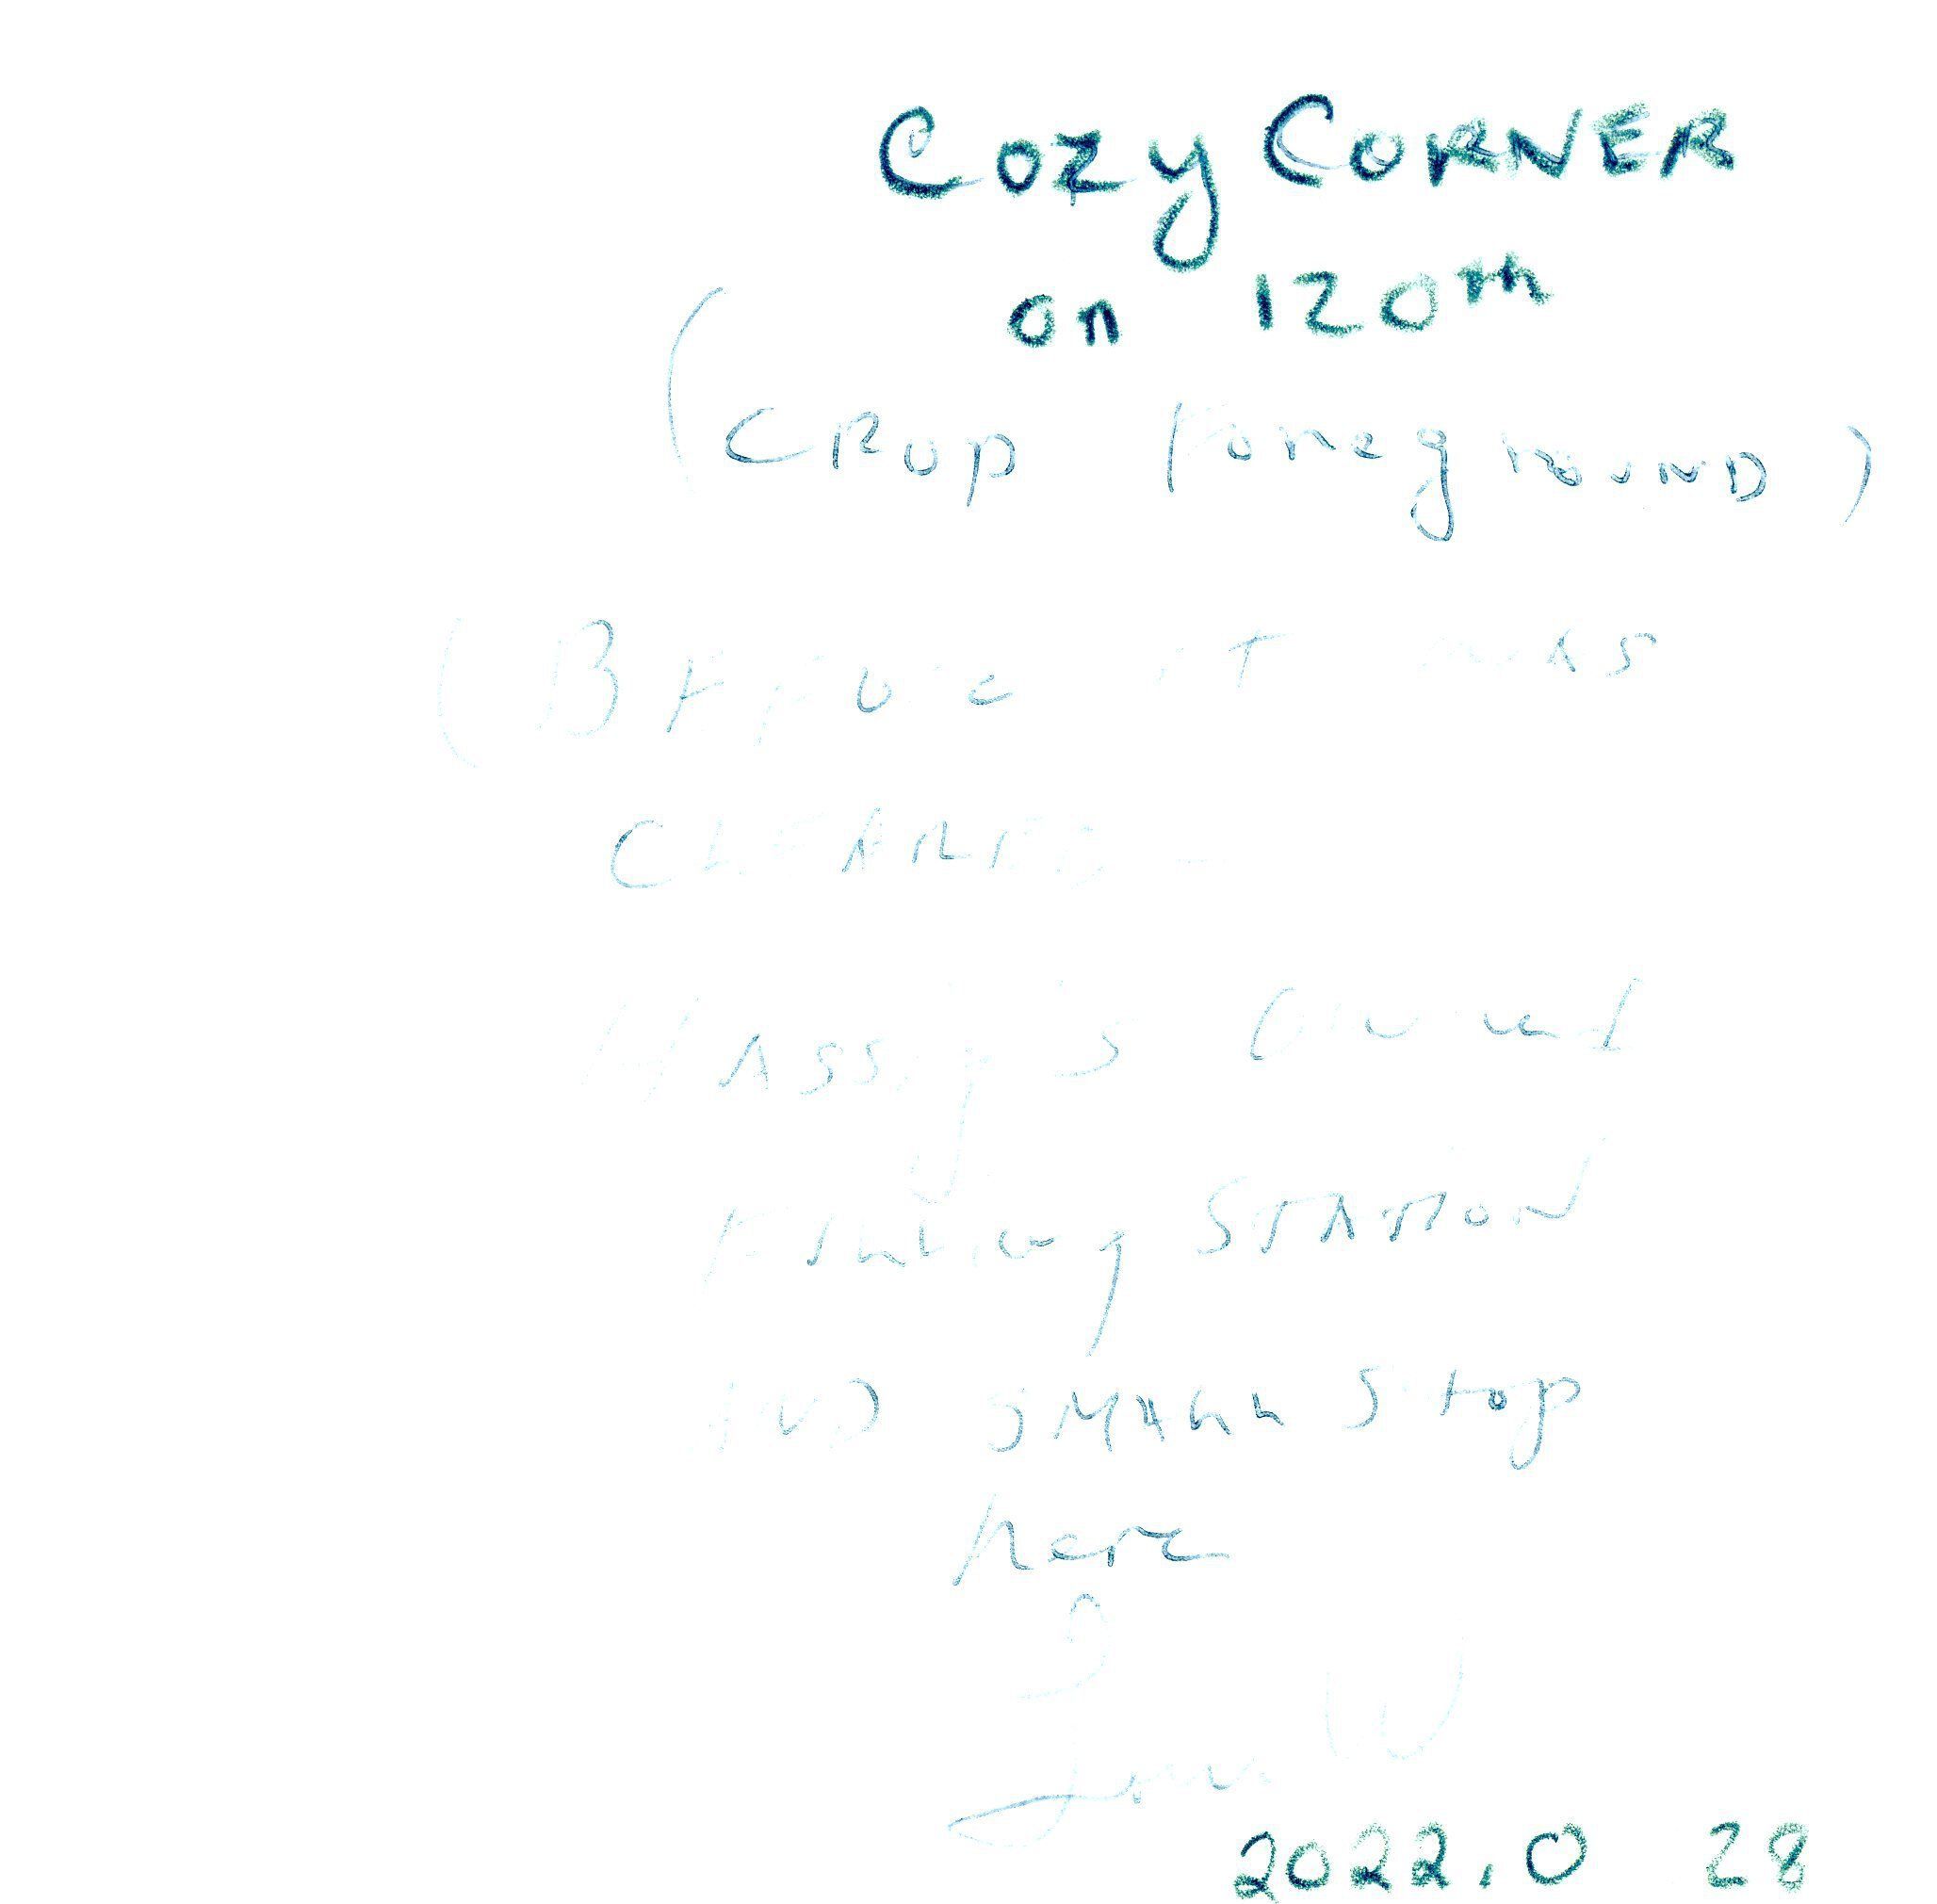 Cozy CORNER
on 120th
(CROP Foreground)
(BEFORE IT WAS
CLEARED -
Owned
STATION
AND SMALL Stop
here
2022.0 28